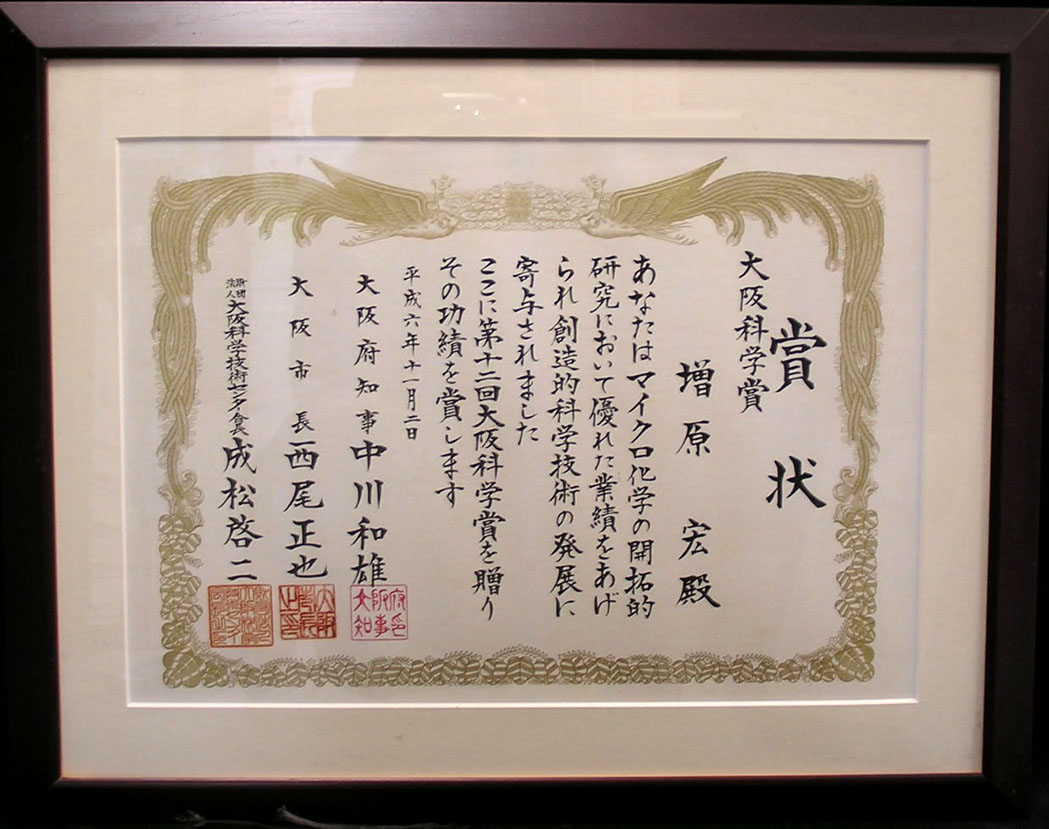 賞状
大阪科学賞
増原宏殿
あなたはマイクロ化学の開拓的
研究において優れた業績をあげ
られ創造的科学技術の発展に
寄与されました
ここに第十二回大阪科学賞を贈り
その功績を賞します
平成六年十一月二日
大阪府知事 中川和雄
大阪府知事印
大阪市長 西尾正也
財団法人大阪科学技術センター会長 成松啓二